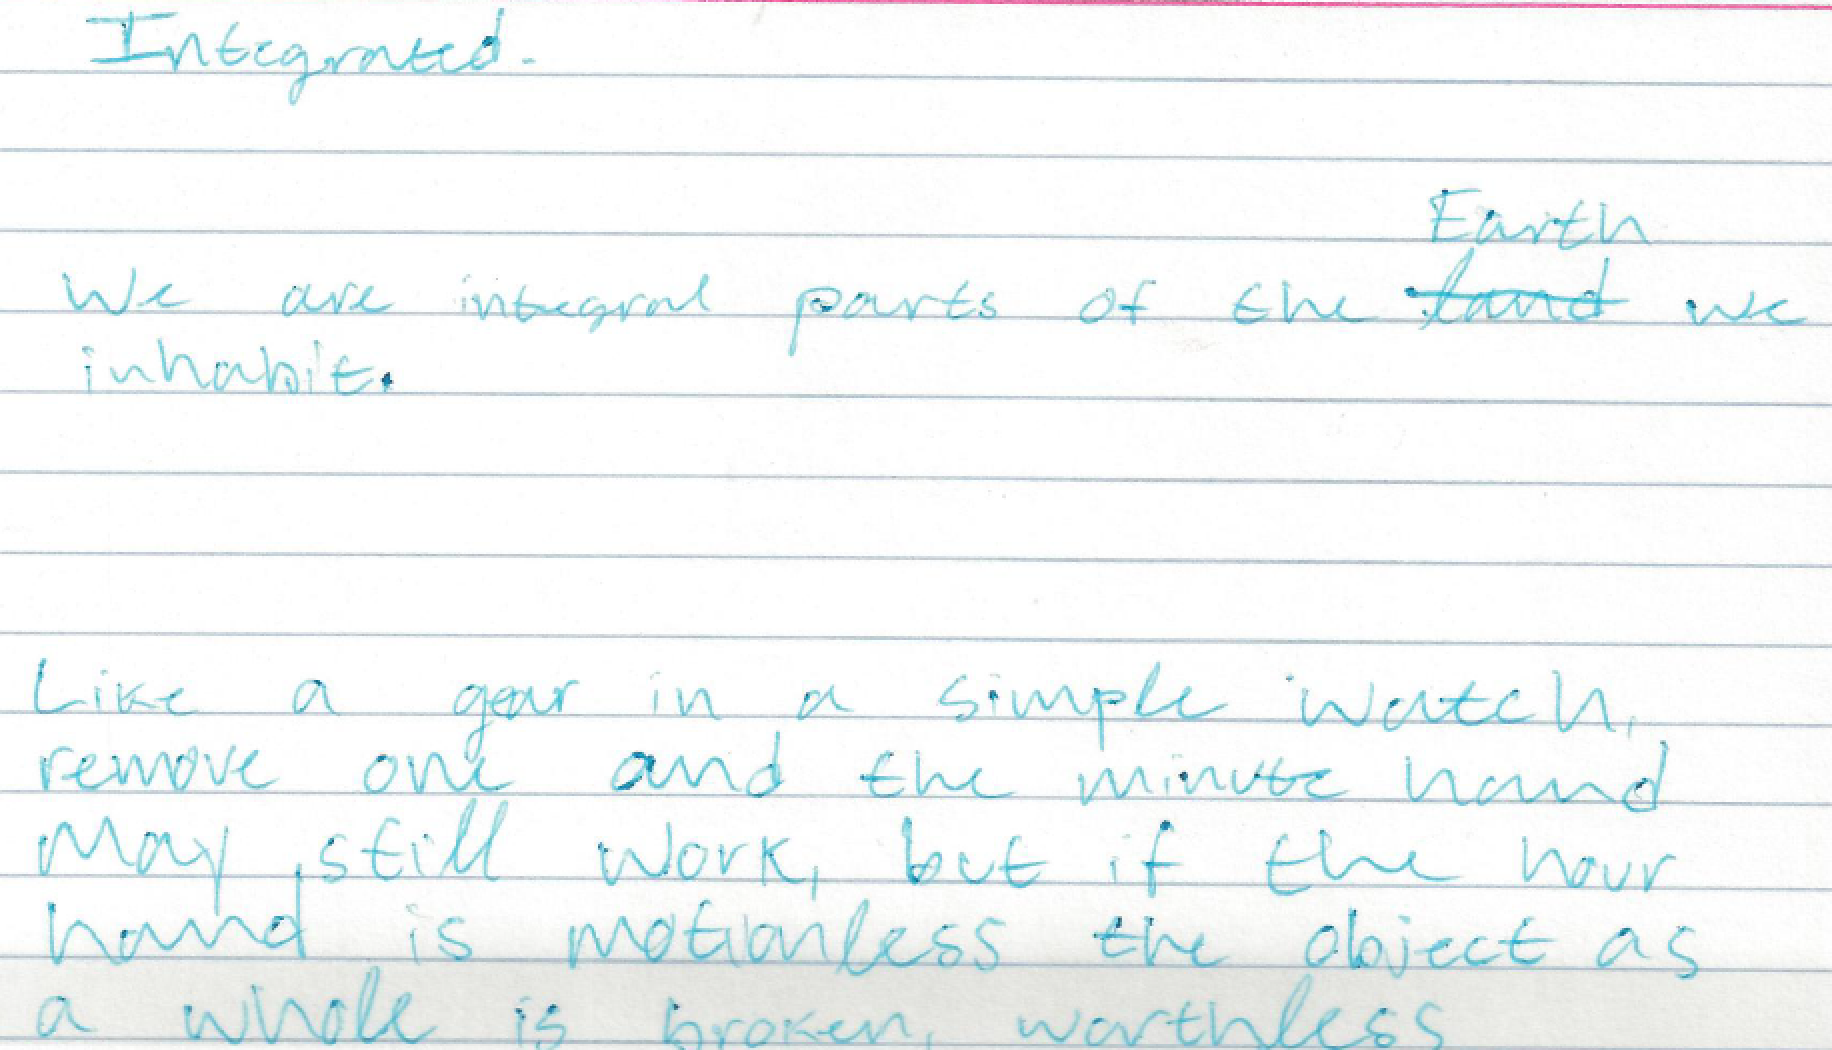 Integrated.
Earth
We are integral parts of the land we
inhabit.
Like a gear in a simple watch,
remove one and the minute hand
May still work, but if the hour
hand is motionless the object as
a whole is broken, worthless